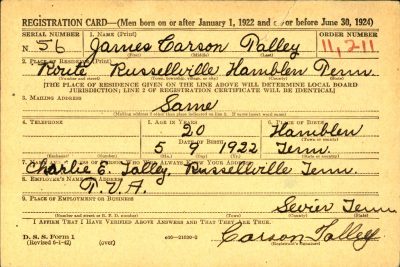 REGISTRATION CARD—(Men born on or after January 1, 1922 and on or before June 30, 1924)
SERIAL NUMBER 1. NAME (Print) ORDER NUMBER
N 56 James Carson Talley 11,211
(First) (Middle) (Last)
2. PLACE OF RESIDENCE (Print)
Route Russellville Hamblen Tenn.
(Number and street) (Town, township, village, or city) (County) (State)
[THE PLACE OF RESIDENCE GIVEN ON THE LINE ABOVE WILL DETERMINE LOCAL BOARD
JURISDICTION; LINE 2 OF REGISTRATION CERTIFICATE WILL BE IDENTICAL]
3. MAILING ADDRESS
Same
(Mailing address if other than place indicated on line 2. If same insert word same)
4. TELEPHONE 5. AGE IN YEARS 6. PLACE OF BIRTH
20 Hamblen
DATE OF BIRTH (Town or county)
5 9 1922 Tenn.
(Exchange) (Number) (Mo.) (Day) (Yr.) (State or country)
7. NAME AND ADDRESS OF PERSON WHO WILL ALWAYS KNOW YOUR ADDRESS
Charlie E. Talley, Russellville Tenn.
8. EMPLOYER'S NAME AND ADDRESS
T.V.A.
9. PLACE OF EMPLOYMENT OR BUSINESS
Sevier Tenn
(Number and street or R. F. D. number) (Town) (County) (State)
I AFFIRM THAT I HAVE VERIFIED ABOVE ANSWERS AND THAT THEY ARE TRUE.
D. S. S. Form 1
(Revised 6-1-42) (over) Carson Talley
(Registrant's signature)